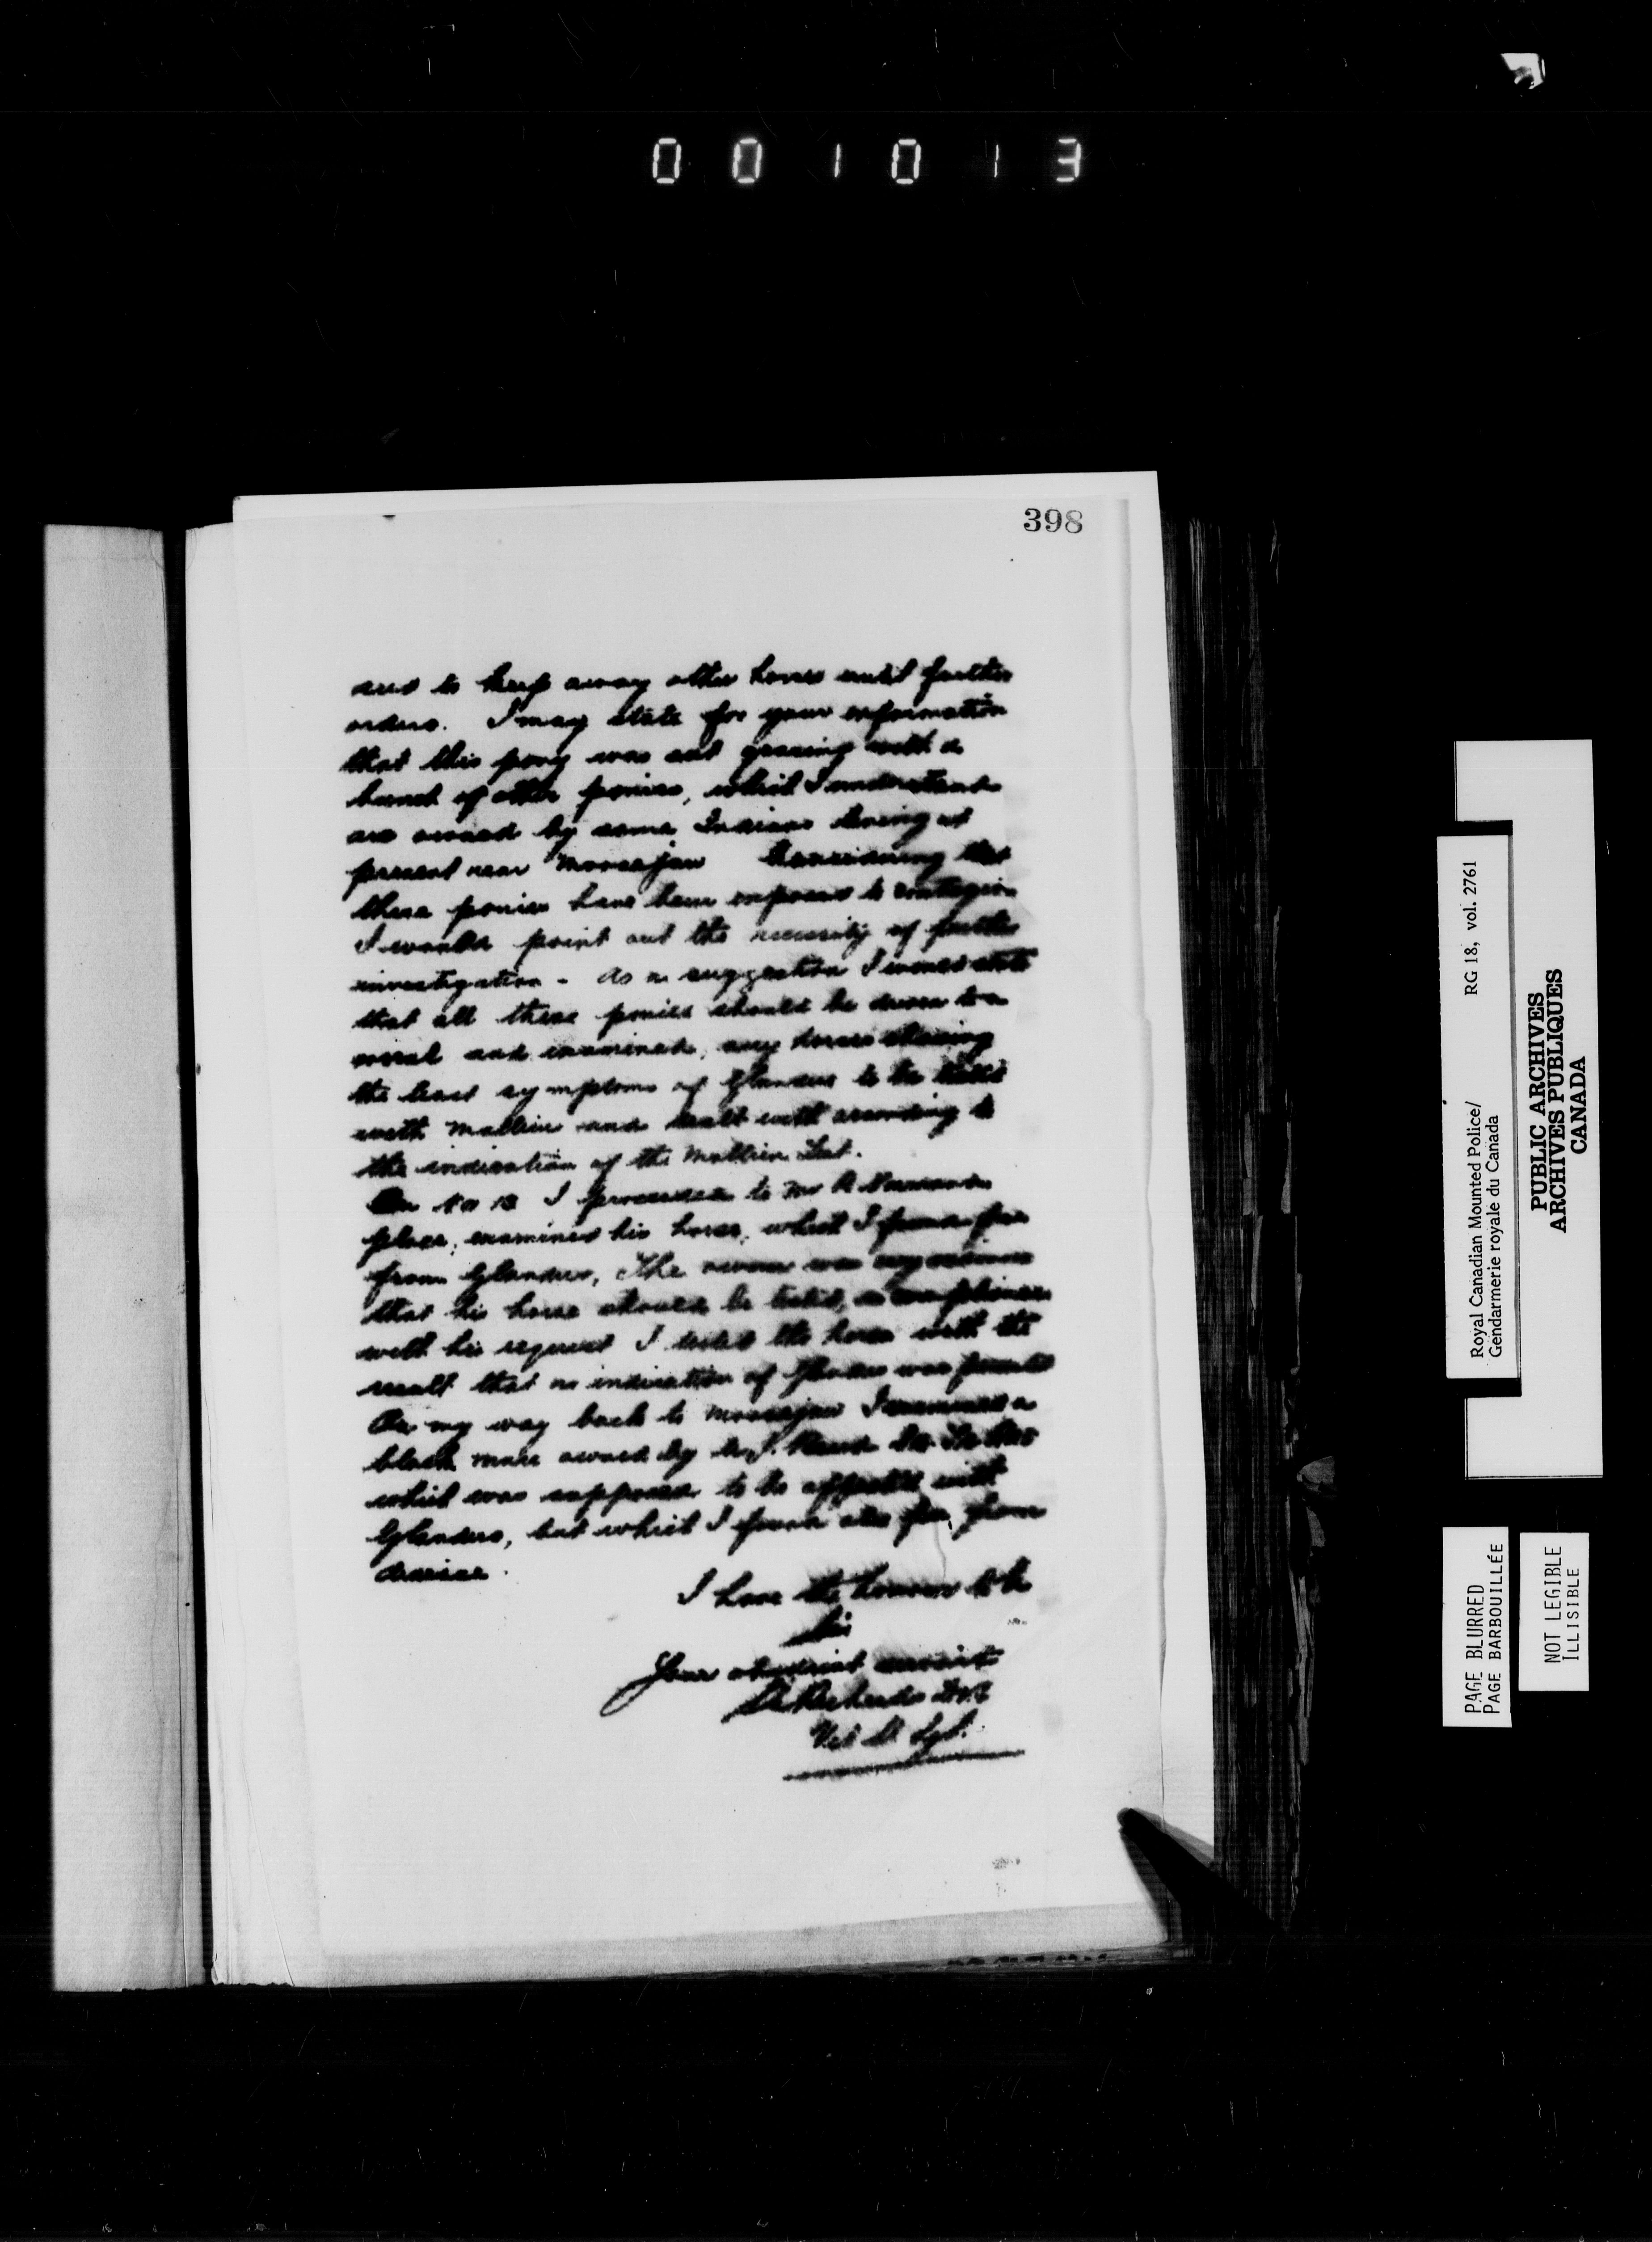 001013
398
and to keep away other horses until further
orders. I may state for your information
that this pony was out grazing with a
bunch of other ponies, which I understand
are owned by some Indians living at
present near Moosejaw Considering that
these ponies have been exposed to contagion
I would point out the necessity of further
investigation - As a suggestion I would state
that all these ponies should be driven to a
corral and examined, any horses showing
the least symptoms of Glanders to be tested
with Mallein and dealt with according to
the indication of the Mallein Test.
On I proceeded to Mr A
place, examined his horse, which I found free
from Glanders, The owner was very anxious
that his horse should be tested, in compliance
with his request I tested the horse with the
result that no indication of Glanders was
On my way back to Moosejaw I examined a
black mare owned by
which was supposed to be affected with
Glanders, but which I found also free from
disease.
I have the honour to be
Sir
Your obedient servant
Vet S. Sgt.
Royal Canadian Mounted Police/ RG 18, vol. 2761
Gendarmerie royale du Canada
PUBLIC ARCHIVES
ARCHIVES PUBLIQUES
CANADA
PAGE BLURRED
PAGE BARBOUILLÉE
NOT LEGIBLE
ILLISIBLE